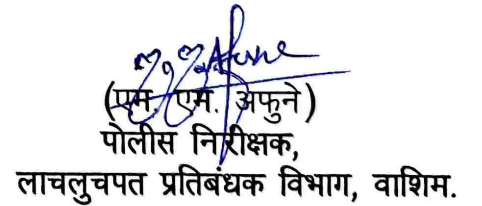 (एम. एम. अफुने)
पोलीस निरीक्षक,
लाचलुचपत प्रतिबंधक विभाग, वाशिम.